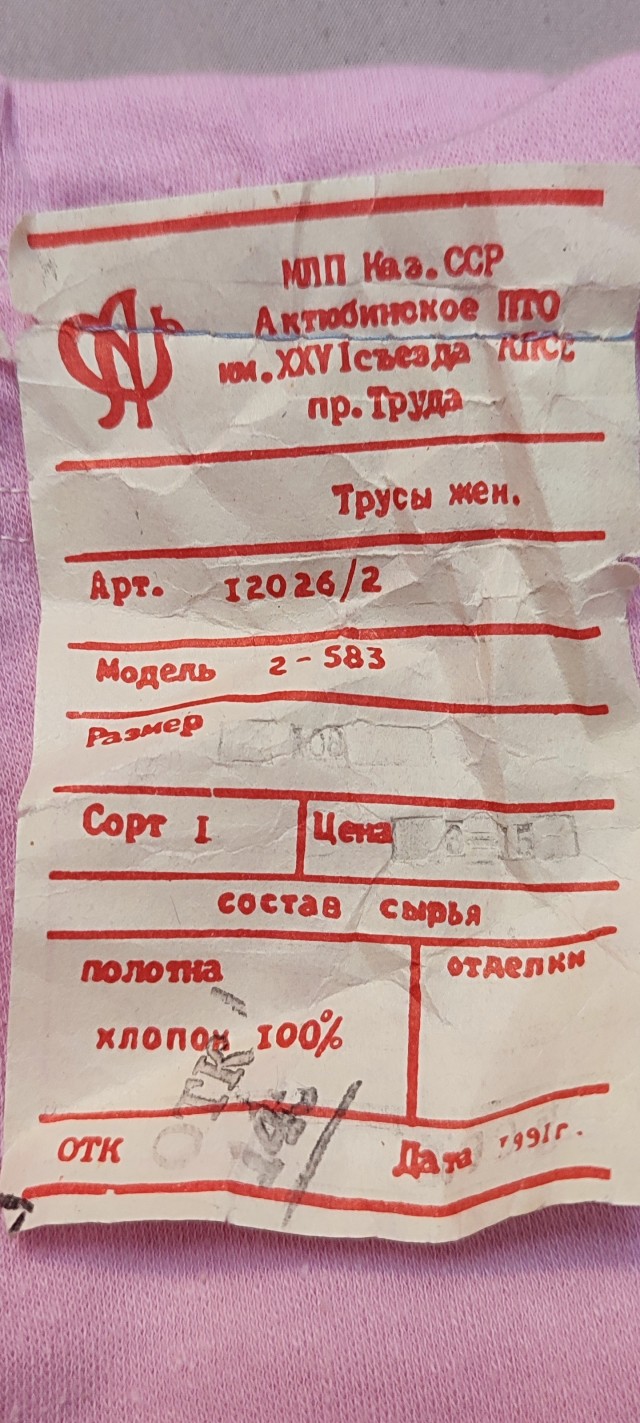 МЛП Каз.ССР
Актюбинское ПТО
им.XXVIсъезда КПСС
пр.Труда
Трусы жен.
Арт. I2026/2
Модель 2-583
Размер
Сорт I Цена
состав сырья
полотна отделки
хлопок 100%
ОТК
ОТК Дата 1991г.